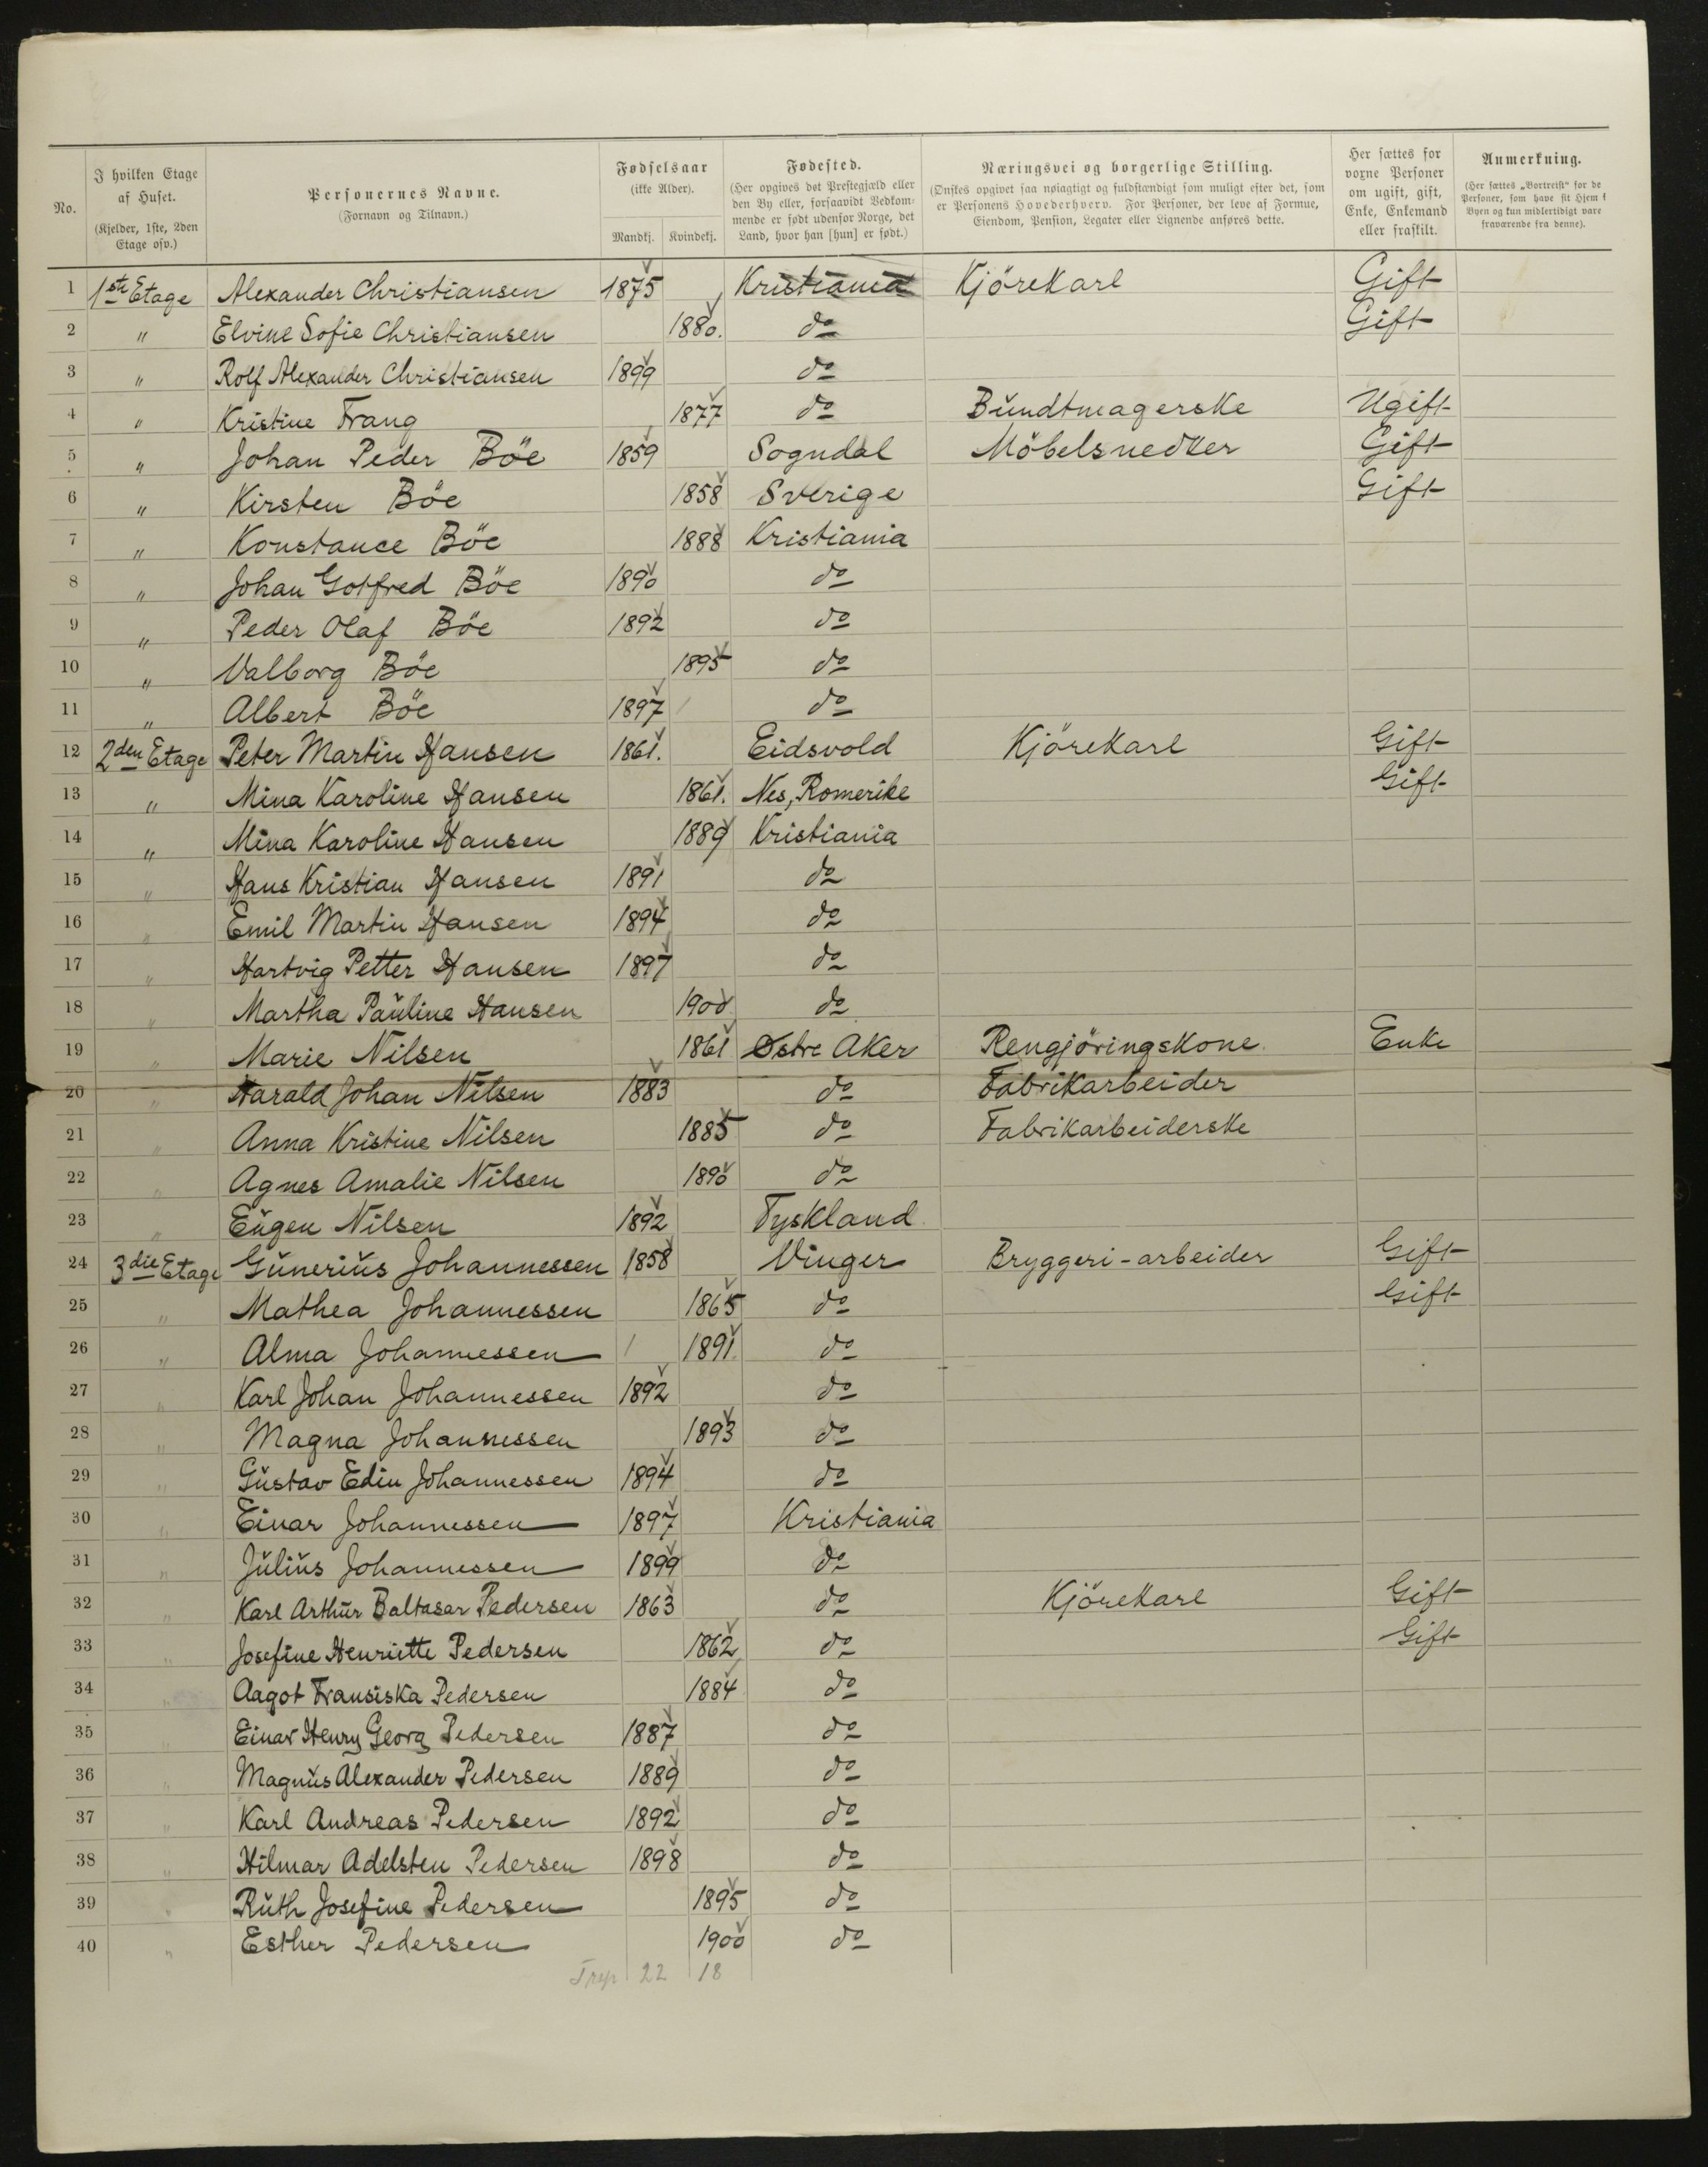 No.
I hvilken Etage af Huset. (Kjelder, 1ste, 2den Etage osv.)
Personernes Navne. (Fornavn og Tilnavn.)
Fødselsaar (ikke Alder). Mandkj. Kvindekj.
Fødested. (Her opgives det Prestegjæld eller den By eller, forsaavidt Vedkommende er født udenfor Norge, det Land, hvor han [hun] er født.)
Næringsvei og borgerlige Stilling. (Ønskes opgivet saa nøiagtigt og fuldstændigt som muligt efter det, som er Personens Hovederhverv. For Personer, der leve af Formue, Eiendom, Pension, Legater eller Lignende anføres dette.)
Her sættes for voxne Personer om ugift, gift, Enke, Enkemand eller fraskilt.
Anmerkning. (Her sættes „Bortreist“ for de Personer, som have sit Hjem i Byen og kun midlertidigt vare fraværende fra denne).
1 1ste Etage Alexander Christiansen 1875 Kristiania Kjörekarl Gift
2 " Elvine Sofie Christiansen 1880. do Gift
3 " Rolf Alexander Christiansen 1899 do
4 " Kristine Frang 1877 do Bundtmagerske Ugift
5 " Johan Peder Böe 1859 Sogndal Möbelsnedker Gift
6 " Kirsten Böe 1858 Sverige Gift
7 " Konstance Böe 1888 Kristiania
8 " Johan Gotfred Böe 1890 do
9 " Peder Olaf Böe 1892 do
10 " Valborg Böe 1895 do
11 " Albert Böe 1897 do
12 2den Etage Peter Martin Hansen 1861. Eidsvold Kjörekarl Gift
13 " Mina Karoline Hansen 1861. Nes, Romerike Gift
14 " Mina Karoline Hansen 1889 Kristiania
15 " Hans Kristian Hansen 1891 do
16 " Emil Martin Hansen 1894 do
17 " Hartvig Petter Hansen 1897 do
18 " Martha Pauline Hansen 1900 do
19 " Marie Nilsen 1861 Østre Aker Rengjöringskone Enke
20 " Harald Johan Nilsen 1883 do Fabrikarbeider
21 " Anna Kristine Nilsen 1885 do Fabrikarbeiderske
22 " Agnes Amalie Nilsen 1890 do
23 " Eugen Nilsen 1892 Tyskland
24 3die Etage Gunerius Johannessen 1858 Vinger Bryggeri-arbeider Gift
25 " Mathea Johannessen 1865 do Gift
26 " Alma Johannessen 1891 do
27 " Karl Johan Johannessen 1892 do
28 " Magna Johannessen 1893 do
29 " Gustav Edin Johannessen 1894 do
30 " Einar Johannessen 1897 Kristiania
31 " Julius Johannessen 1899 do
32 " Karl Arthur Baltasar Pedersen 1863 do Kjörekarl Gift
33 " Josefine Henriette Pedersen 1862 do Gift
34 " Aagot Fransiska Pedersen 1884 do
35 " Einar Henry Georg Pedersen 1887 do
36 " Magnus Alexander Pedersen 1889 do
37 " Karl Andreas Pedersen 1892 do
38 " Hilmar Adelsten Pedersen 1898 do
39 " Ruth Josefine Pedersen 1895 do
40 " Esther Pedersen 1900 do
22 18